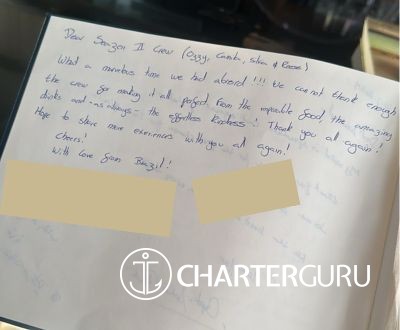 Dear Seazen II Crew (Ozzy, Camila, & Reese)
What a marvelous time we had aboard!!! We can not thank enough
the crew for making it all perfect. From the impecable food, the amazing
drinks and -as always- the effortless kindness! Thank you all again!
Hope to share more experiences with you all again!
Cheers!
With love from Brazil!
CHARTERGURU